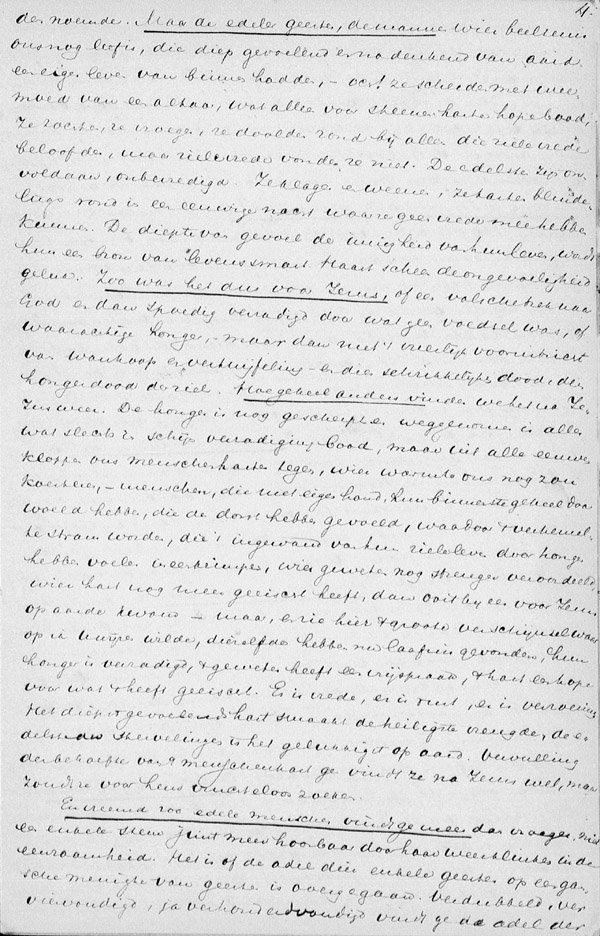 4.
der noemde. Maar de edeler geesten, de mannen wier beeltenis
ons nog lief is, die diep gevoelend en nadenkend van aard
een eigen leven van binnen hadden, – och! ze scheiden met wee-
moed van een altaar, wat alleen voor steenen harten hope bood,
ze zochten, ze vroegen, ze doolden rond bij allen die zielevrede
beloofden, maar zielevrede vonden ze niet. De edelste zijn on-
voldaan, onbevredigd. Ze klagen en weenen, ze tasten blinde-
lings rond in een eeuwige nacht waar ze geen vrede mee hebben
kunnen. De diepte van gevoel de innigheid van hun leven, wordt
hun een bron van levenssmart. Haast scheen de ongevoeligheid
geluk. Zoo was het dus voor Jezus, of een valsche trek naar
God en dan spoedig verzadigd door wat geen voedsel was, of
waarachtige honger, – maar dan met 't vreeselijk vooruitzicht
van wanhoop en vertwijfeling – en die schrikkelijke dood, den
hongerdood der ziel. Hoe geheel anders vinden we het na Je-
zus weer. De honger is nog gescherpt en weggenomen is alles
wat slechts in schijn verzadiging bood, maar uit alle eeuwen
kloppen ons menschenharten tegen, wier warmte ons nog zou
koesteren, – menschen, die met eigen hand, hun binnenste geheel door
woeld hebben, die de dorst hebben gevoeld, waardoor 't verhemel-
te stram worden, die 't ingewand van hun zieleleven door honger
hebben voelen ineenkrimpen, wier geweten nog strenger veroordeeld,
wier hart nog meer geeischt heeft, dan ooit bij een voor Jezus
op aarde bestond – maar, en zie hier 't groote verschijnsel waar
op ik wijzen wilde, diezelfde hebben nu laafnis gevonden, hun
honger is verzadigd, 't geweten heeft een vrijspraak, 't hart een hope
voor wat 't heeft geeischt. Er is vrede, er is rust, er is verzoening
Het diepst gevoelend hart smaakt de heiligste vreugde, de e-
delste der stervelingen is het gelukkigst op aard. Vervulling
der behoefte van 't menschenhart ge vindt ze na Jezus wel, maar
zoudt ze voor hem vruchteloos zoeken.
En vreemd zoo edele menschen vindt ge meer dan vroeger, niet
een enkele stem juist meer hoorbaar door haar weerklinken in de
eenzaamheid. Het is of de adel dier enkele geesten op een gan-
sche menigte van geesten is overgegaan. Verdubbeld, ver-
viervoudigd, ja verhonderdvoudigd vindt ge de adel der